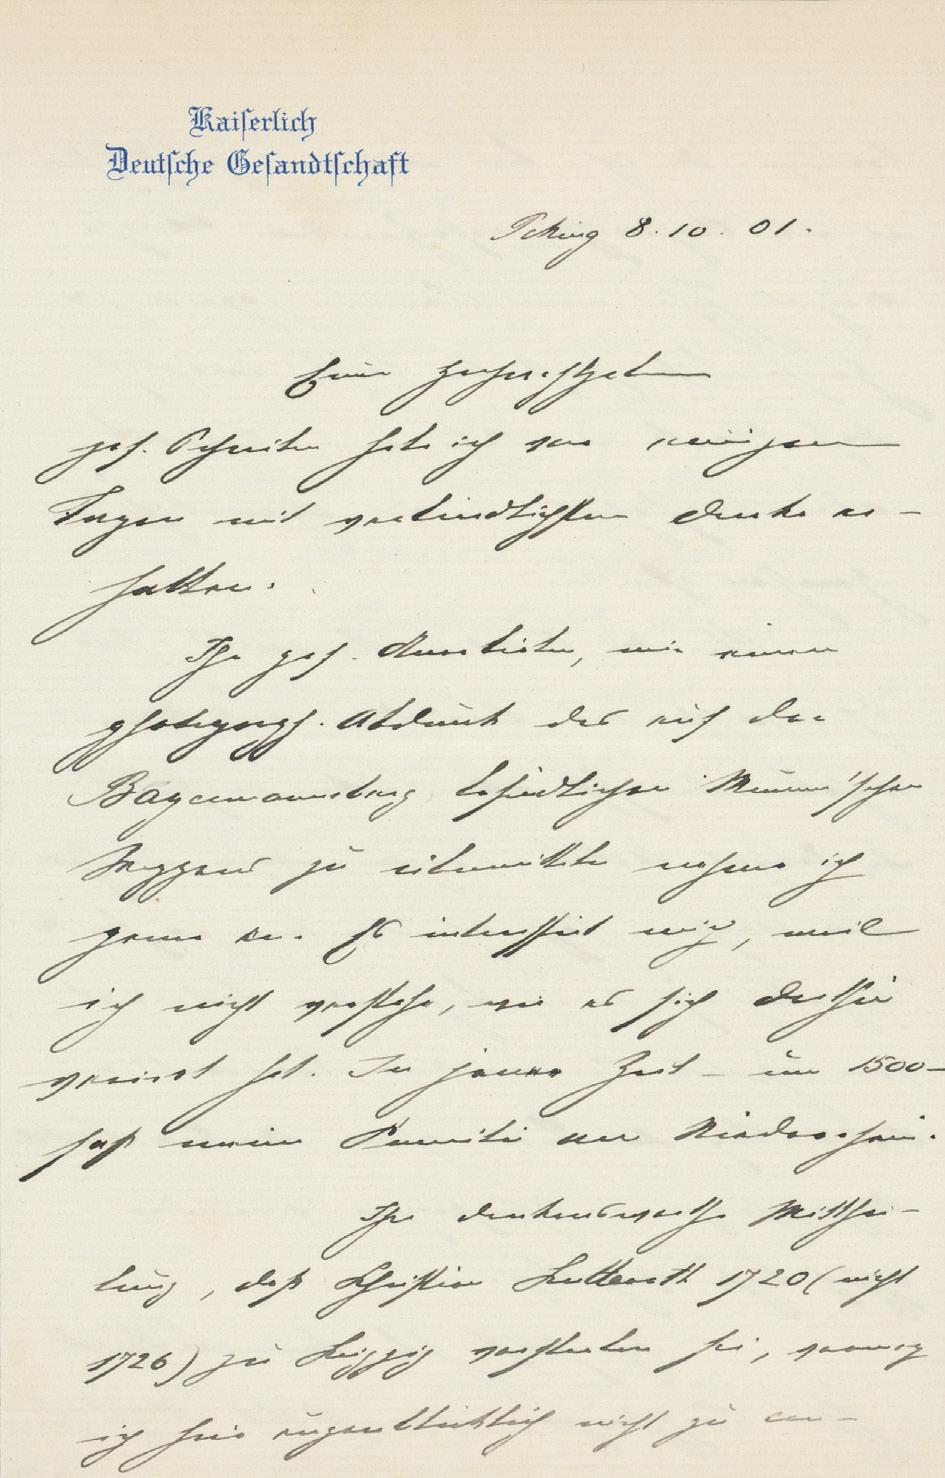 Kaiserlich
Deutsche Gesandtschaft
Peking 8. 10. 01.
Euer Hochwohlgeboren
gef. Schreiben habe ich vor einigen
Tagen mit verbindlichstem Danke er-
halten.
Ihr gef. Anerbieten, mir einen
photogrph. Abdruck des auf der
befindlichen Mumm'schen
Wappens zu übermitteln nehme ich
gerne an. Es interessirt mich, weil
ich nicht verstehe, wie es sich dorthin
verirrt hat. In jener Zeit – um 1500 –
saß meine Familie am Niederrhein.
Ihre dankenswerthe Mitthei-
lung, daß Christian Lutteroth 1720 (nicht
1726) zu Leipzig verstorben sei, vermag
ich hier augenblicklich nicht zu con-